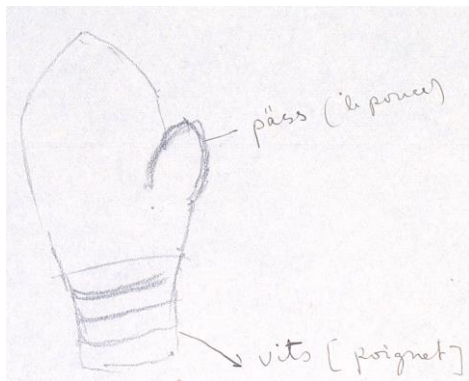 päss (le pouce)
vits [poignet]